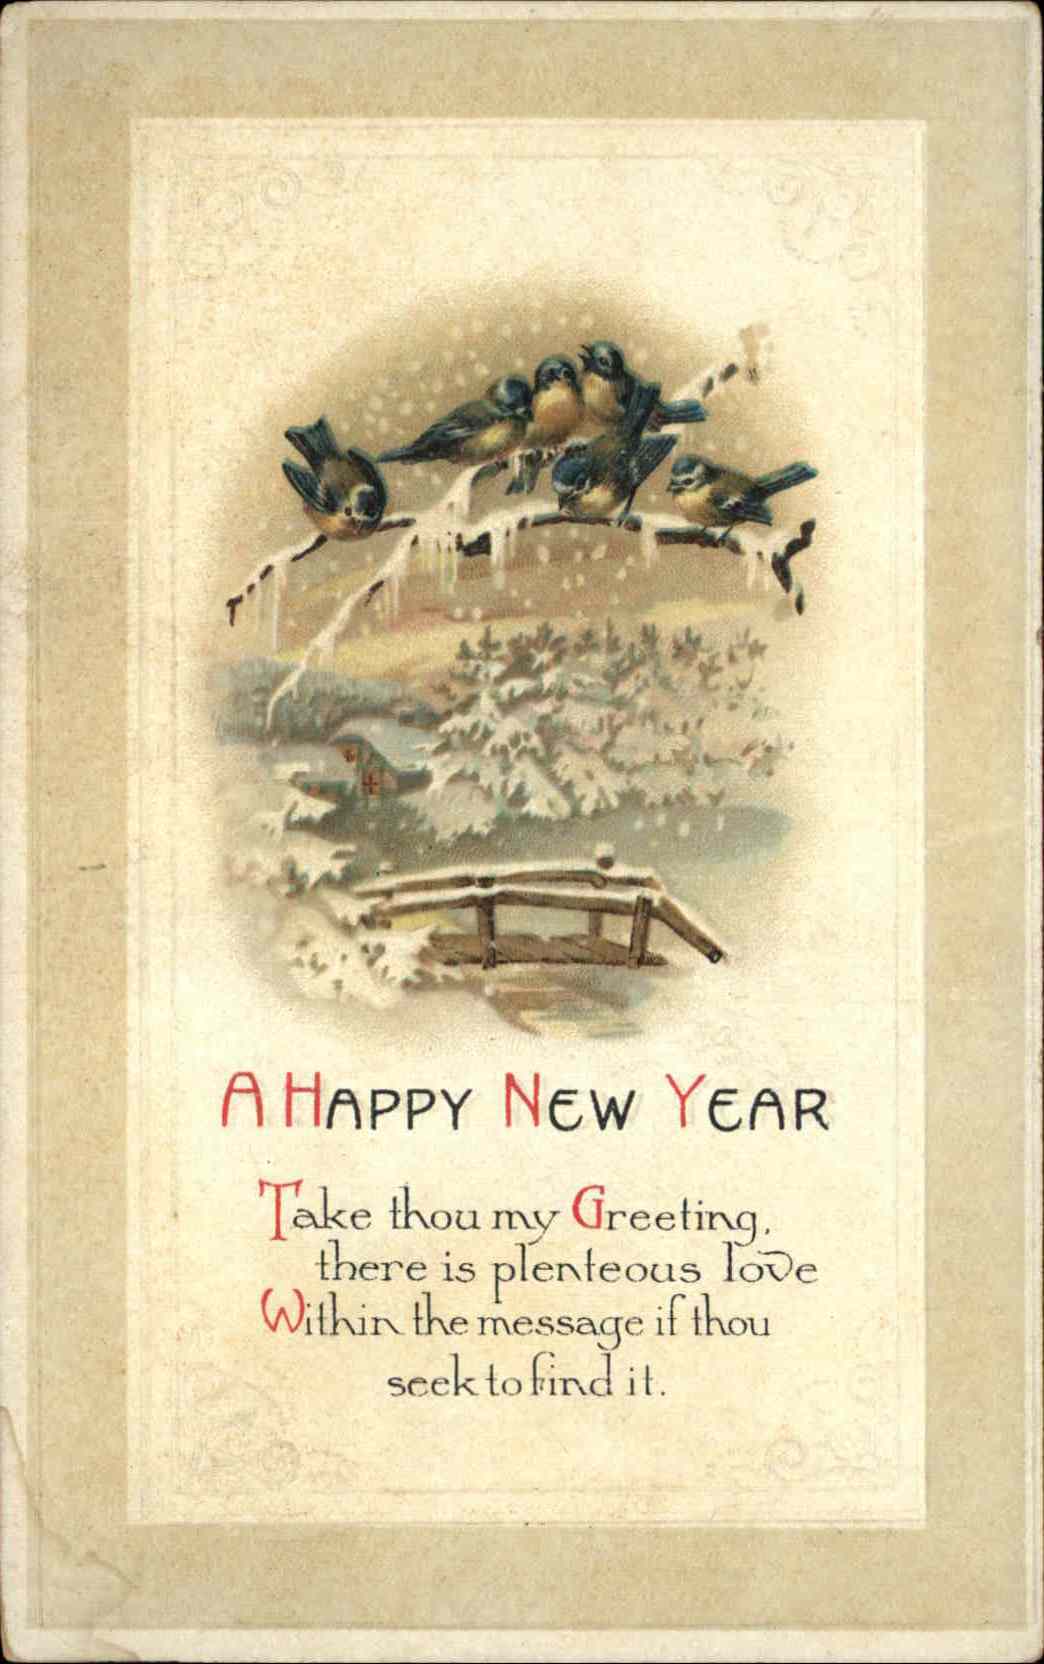 A HAPPY NEW YEAR
Take thou my Greeting,
there is plenteous love
Within the message if thou
seek to find it.